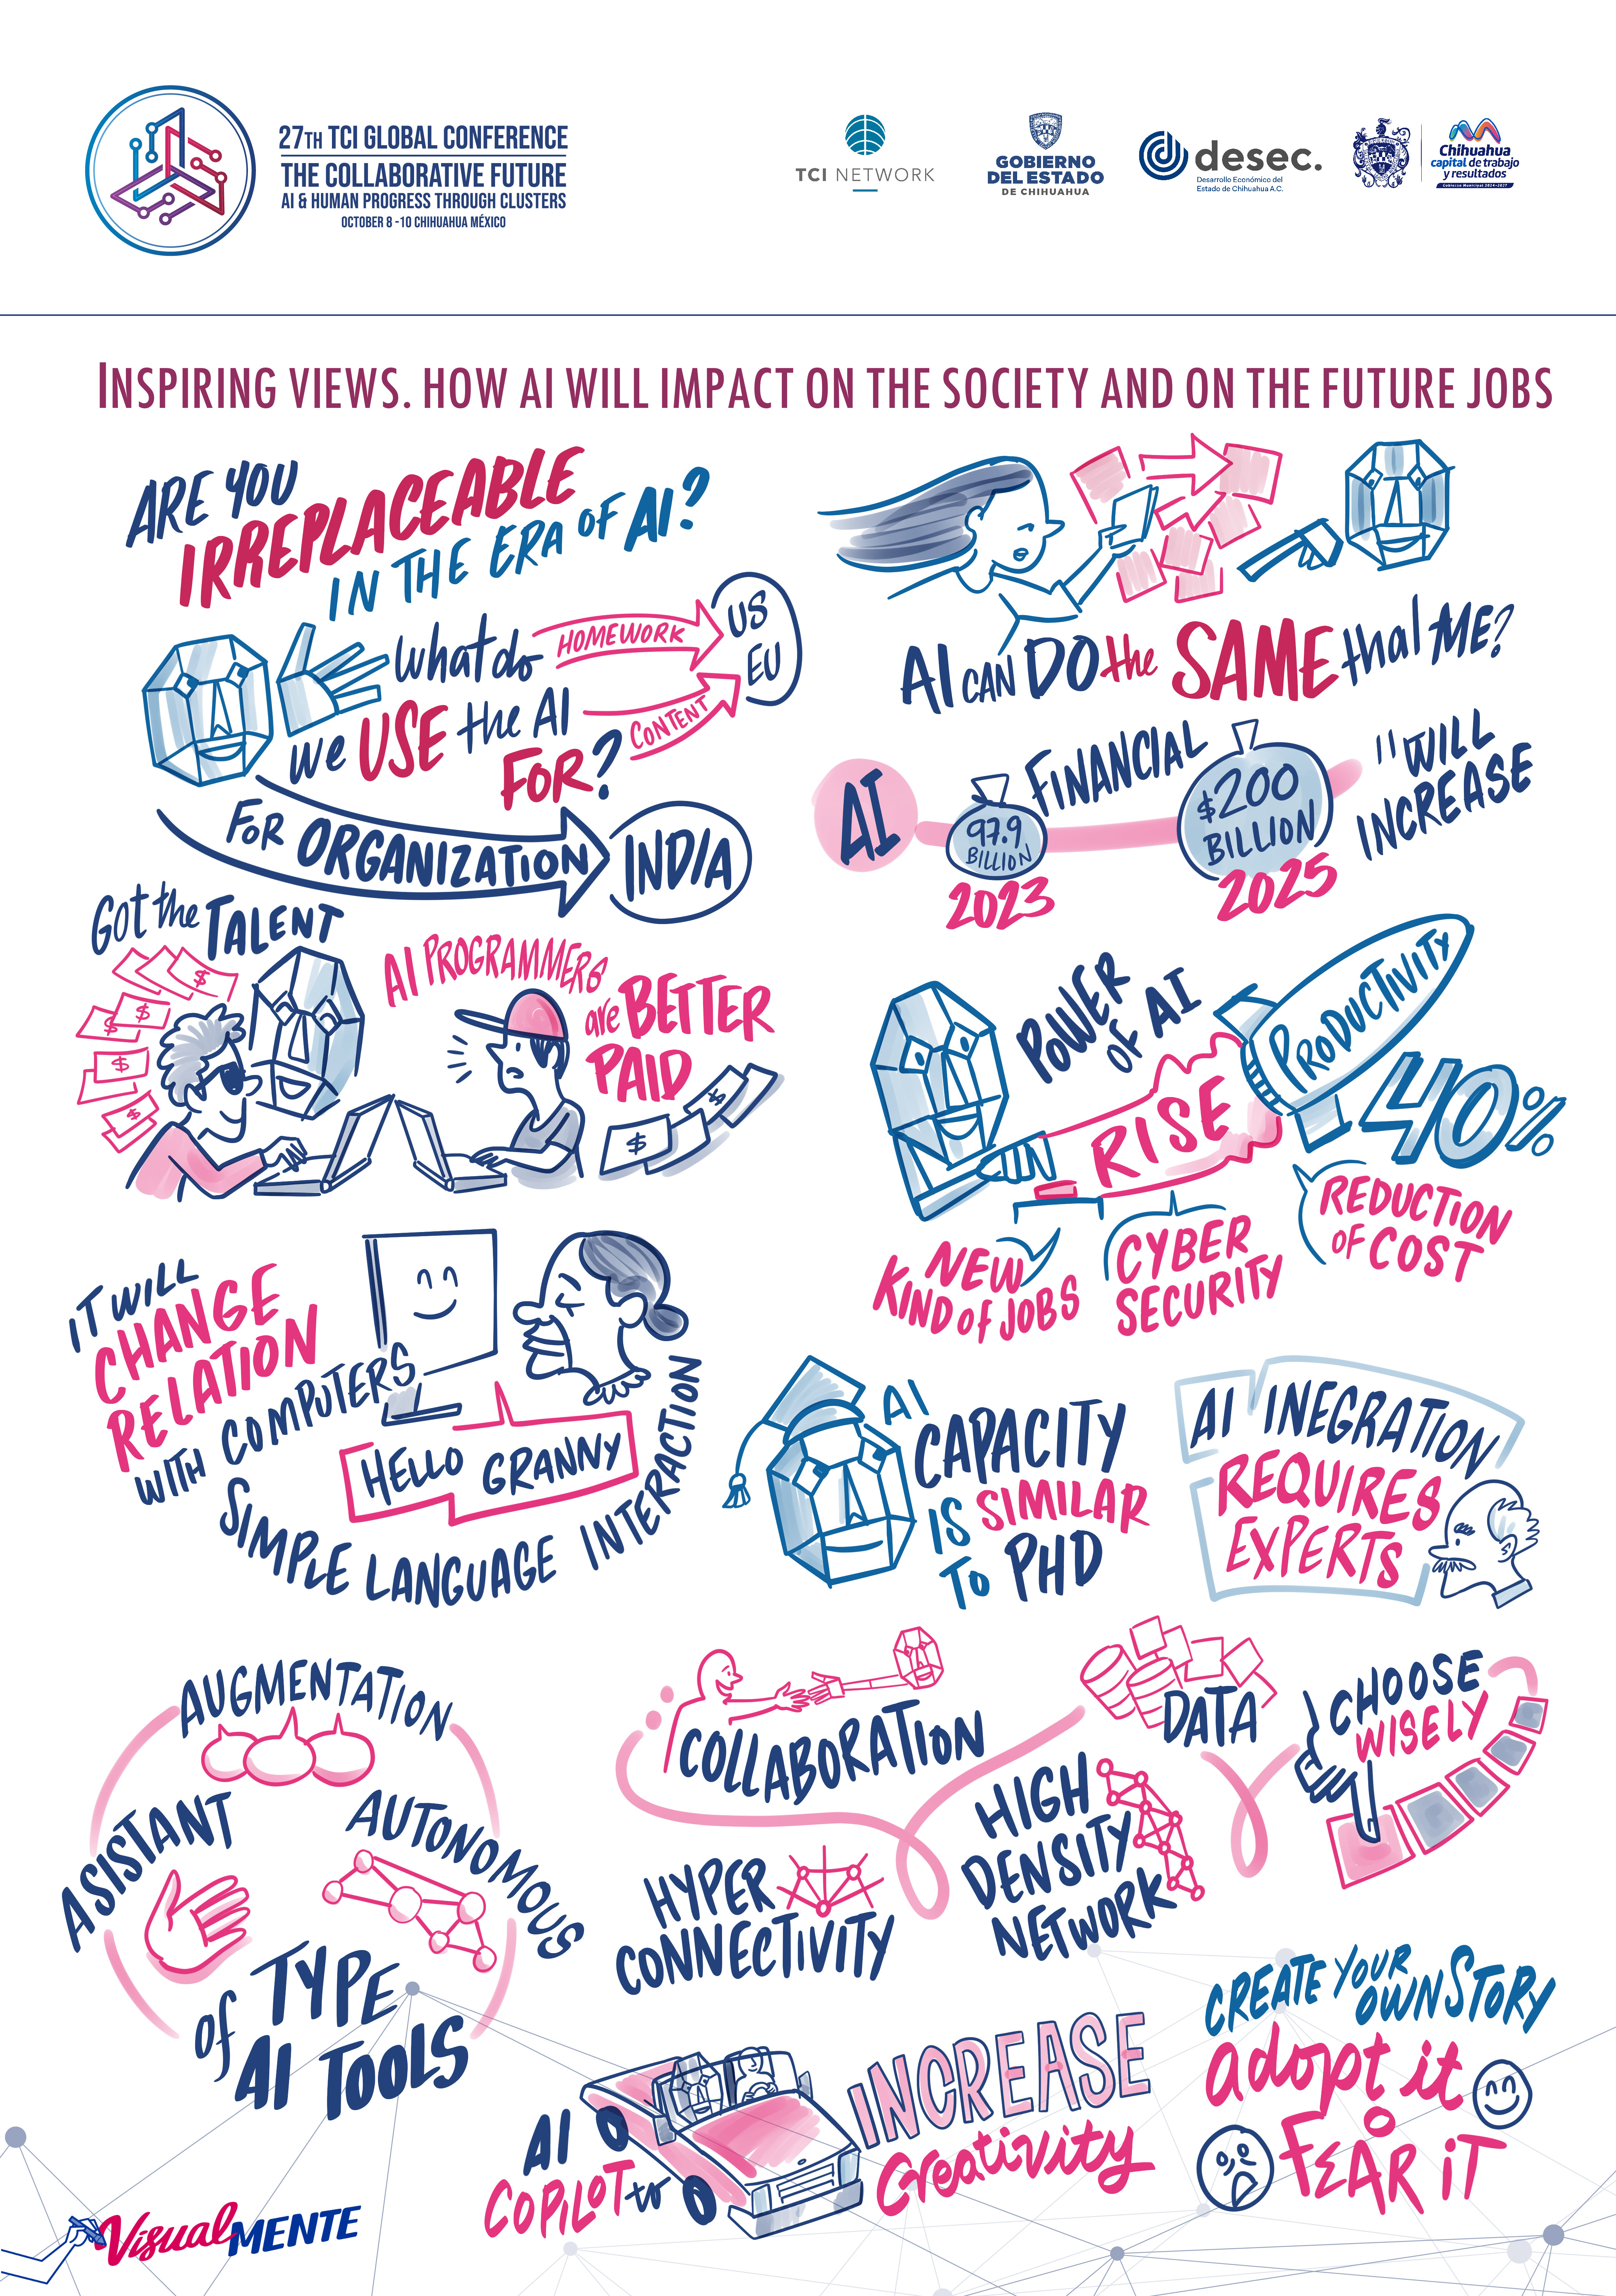 27TH TCI GLOBAL CONFERENCE
THE COLLABORATIVE FUTURE
AI & HUMAN PROGRESS THROUGH CLUSTERS
OCTOBER 8 -10 CHIHUAHUA MÉXICO
TCI NETWORK
GOBIERNO
DEL ESTADO
DE CHIHUAHUA
desec.
Desarrollo Económico del
Estado de Chihuahua A.C.
Chihuahua
capital de trabajo
y resultados
Gobierno Municipal 2024-2027
INSPIRING VIEWS. HOW AI WILL IMPACT ON THE SOCIETY AND ON THE FUTURE JOBS
ARE YOU
IRREPLACEABLE
IN THE ERA OF AI?
What do
we USE the AI
FOR?
HOMEWORK
CONTENT
US
EU
FOR ORGANIZATION
INDIA
AI CAN DO the SAME that ME?
AI
97.9
BILLION
2023
FINANCIAL
$200
BILLION
2025
"WILL
INCREASE
Got the TALENT
$
$
$
$
$
AI PROGRAMMERS
are BETTER
PAID
$
$
POWER
OF AI
RISE
PRODUCTIVITY
40%
NEW
KIND OF JOBS
CYBER
SECURITY
REDUCTION
OF COST
IT WILL
CHANGE
RELATION
WITH COMPUTERS
HELLO GRANNY
SIMPLE LANGUAGE INTERACTION
AI
CAPACITY
IS SIMILAR
TO PHD
AI INEGRATION
REQUIRES
EXPERTS
AUGMENTATION
ASISTANT
AUTONOMOUS
TYPE
of
AI TOOLS
COLLABORATION
HYPER
CONNECTIVITY
HIGH
DENSITY
NETWORK
DATA
CHOOSE
WISELY
AI
COPILOT to
INCREASE
Creativity
CREATE YOUR
OWN STORY
adopt it
O
FEAR iT
Visual MENTE